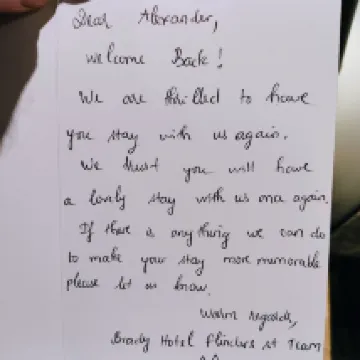 Dear Alexander,
Welcome Back!
We are thrilled to have
you stay with us again.
We trust you will have
a lovely stay with us once again.
If there is anything we can do
to make your stay more memorable
please let us know.
Warm regards,
Brady Hotel Flinders st Team